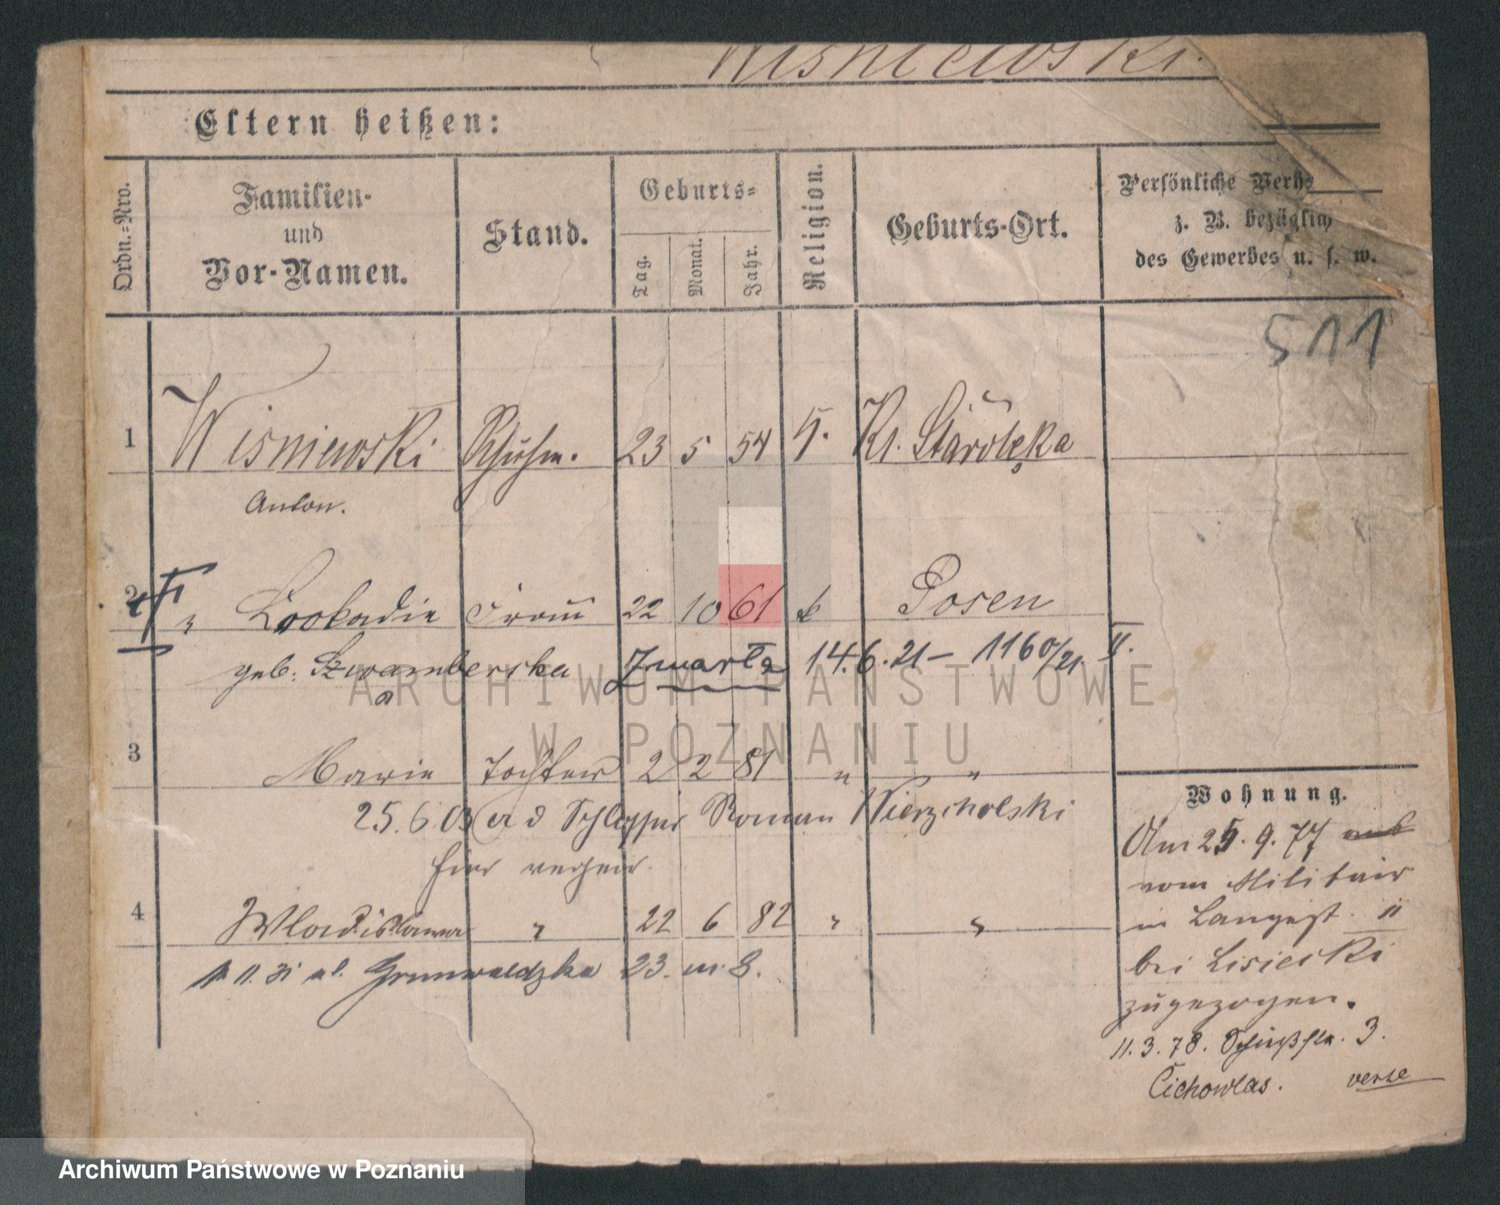 Wiśniewski.
Eltern heißen:
Ordn.-Nro.
Familien-
und
Vor-Namen.
Stand.
Geburts-
Tag.
Monat.
Jahr.
Religion.
Geburts-Ort.
Persönliche Verh
z. B. bezüglich
des Gewerbes u. s. w.
511
1 Wiśniewski Schuhm. 23 5 54 k. Kl. Starołęka
Anton.
2 " Leokadie Frau 22 10 61 k Posen
geb. Szwamberska Zmarła 14.6.21 – 1160/21 II.
3 Marie Tochter 2 2 81 " "
25.6.03 Schlosser Roman Wierzcholski
hier
4 Wladislawa " 22 6 82 " "
11. 31 ul. Grunwaldzka 23. m. 8.
Wohnung.
Am 25. 9. 77
vom Militair
in Langest. 11
bei Lisiecki
zugezogen.
11. 3. 78. Schießstr. 3.
Cichowlas. verte
Archiwum Państwowe
w Poznaniu
Archiwum Państwowe w Poznaniu